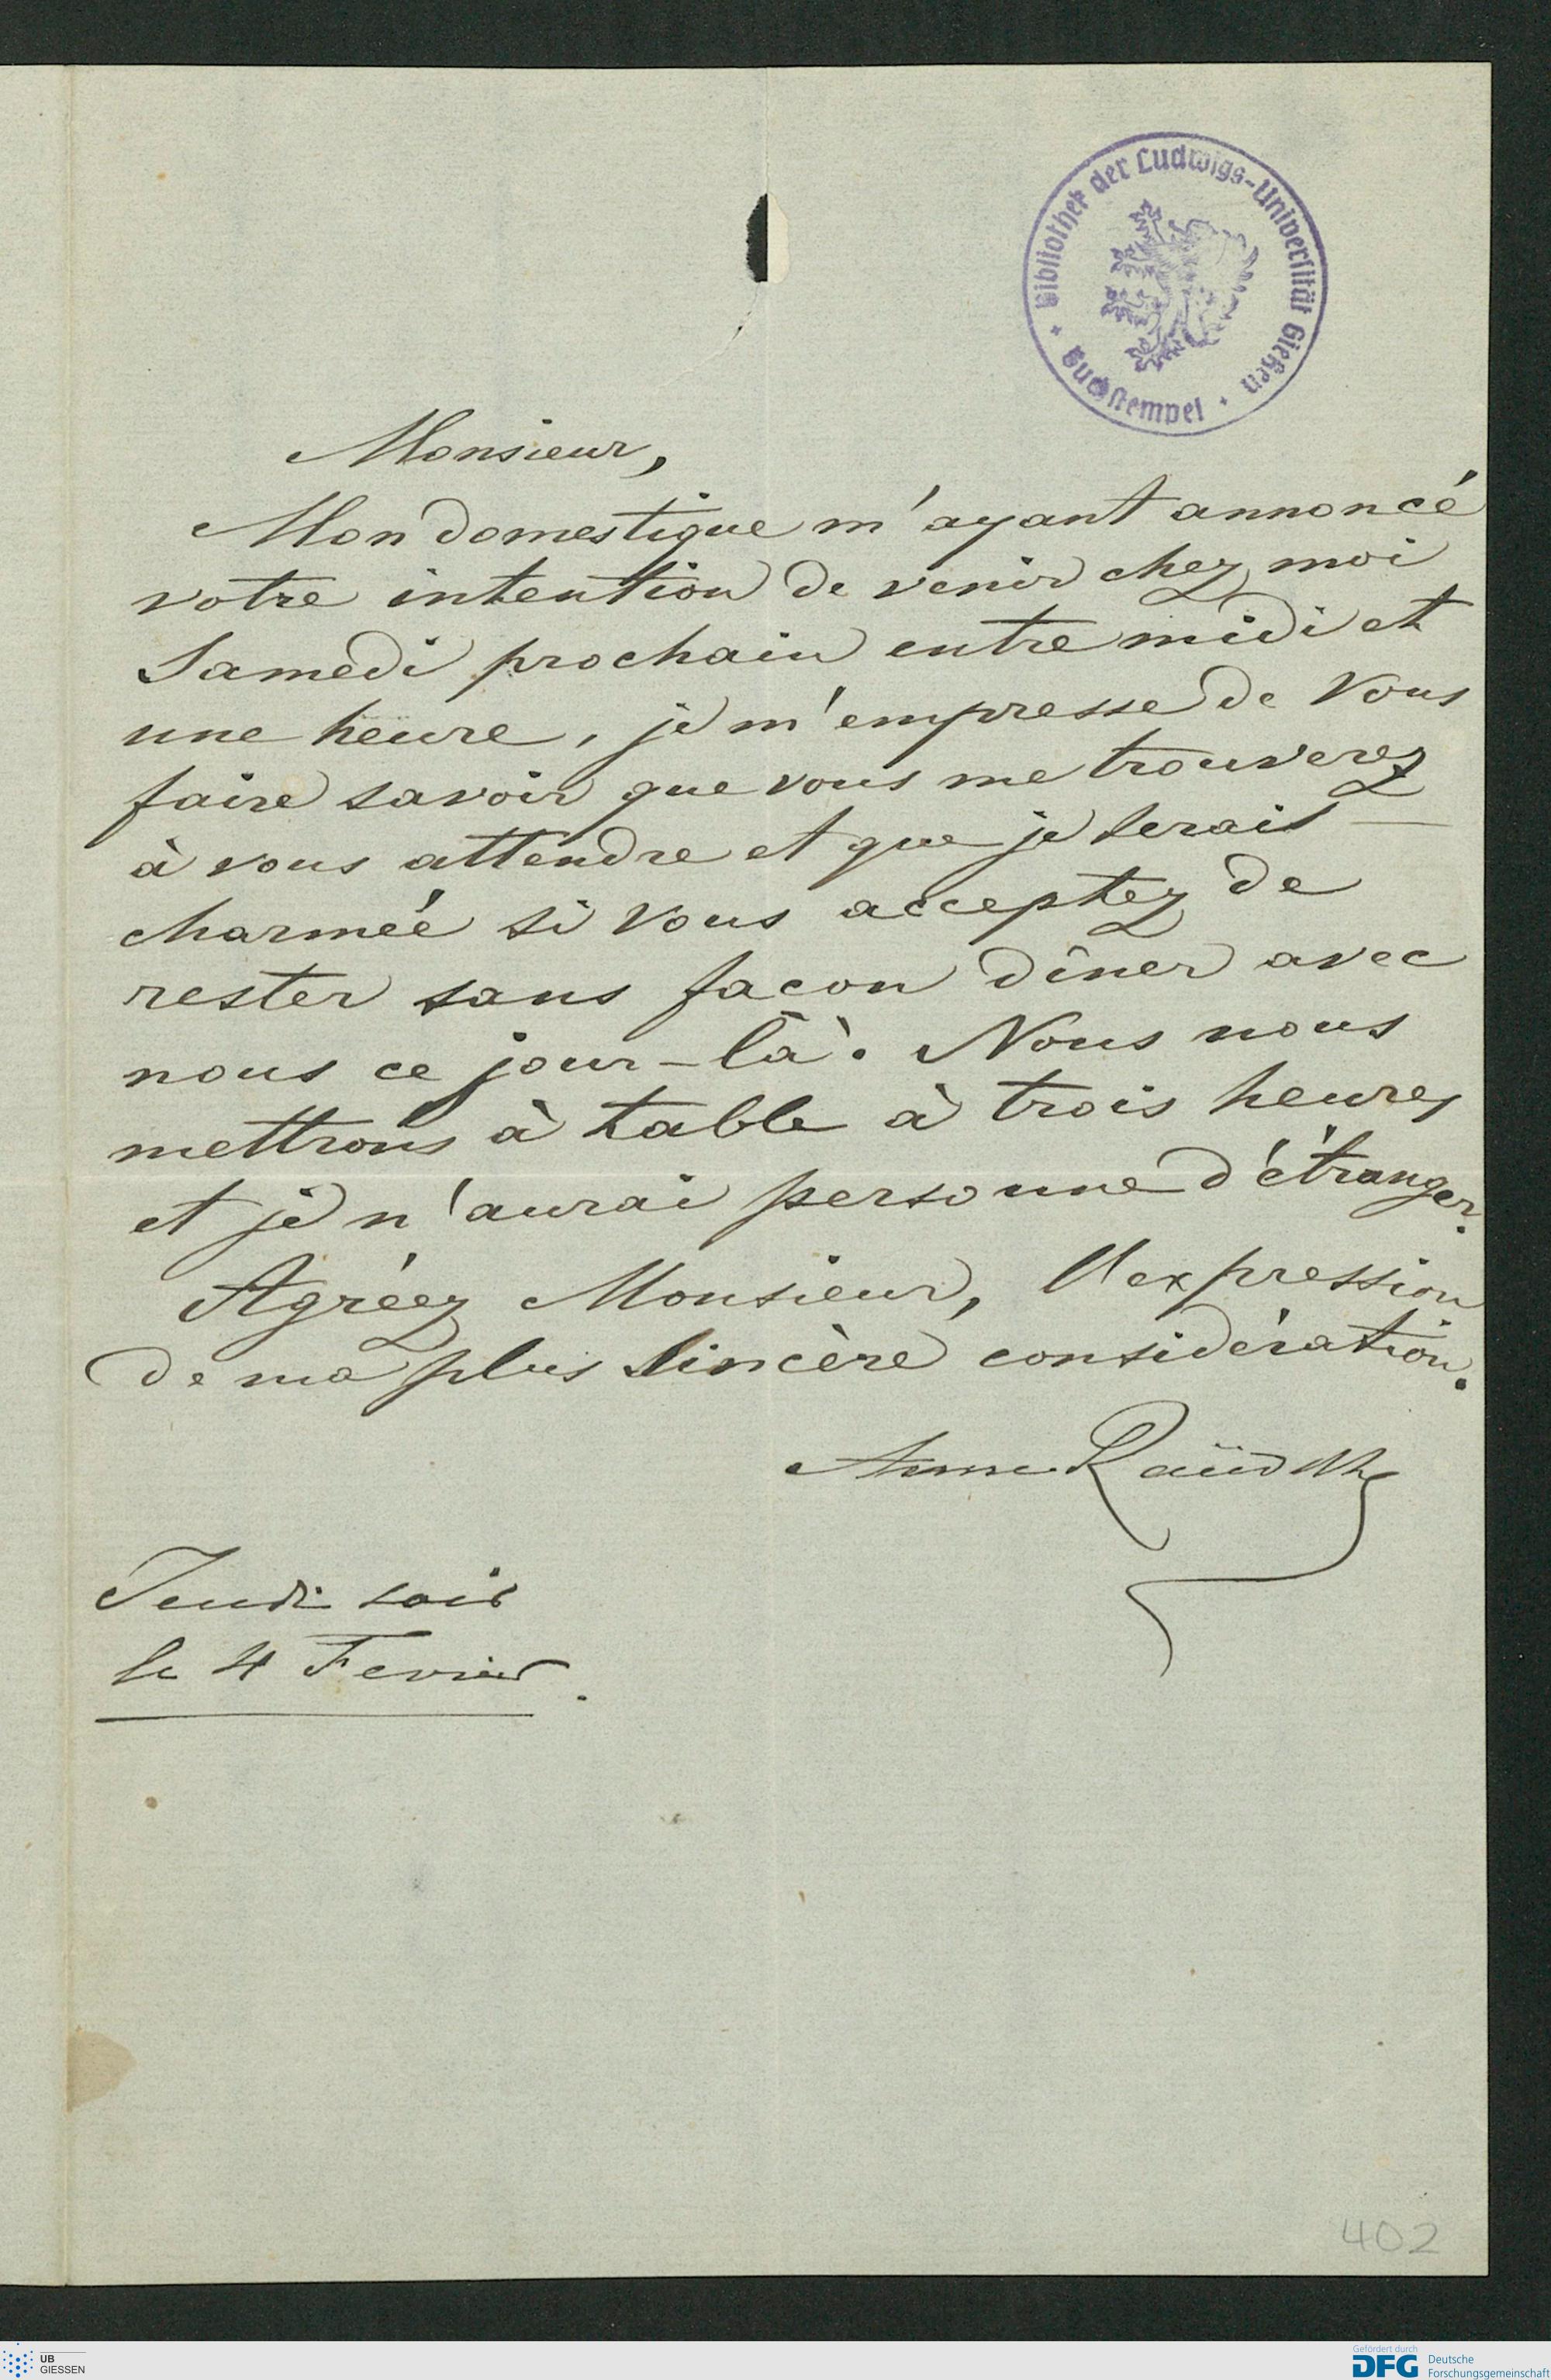 Bibliothek der Ludwigs-Universität Gießen
Buchstempel
Monsieur,
Mon domestique m'ayant annoncé
votre intention de venir chez moi
Samedi prochain entre midi et
une heure, je m'empresse de Vous
faire savoir que vous me trouverez
à vous attendre et que je serais —
charmée si Vous acceptez de
rester sans facon dîner avec
nous ce jour-là. Nous nous
mettrons à table à trois heures
et je n'aurai personne d'étranger.
Agréez Monsieur, l'expression
de ma plus sincère considération.
Jeudi soir
le 4 Fevrier.
402
UB
GIESSEN
Gefördert durch
DFG Deutsche
Forschungsgemeinschaft